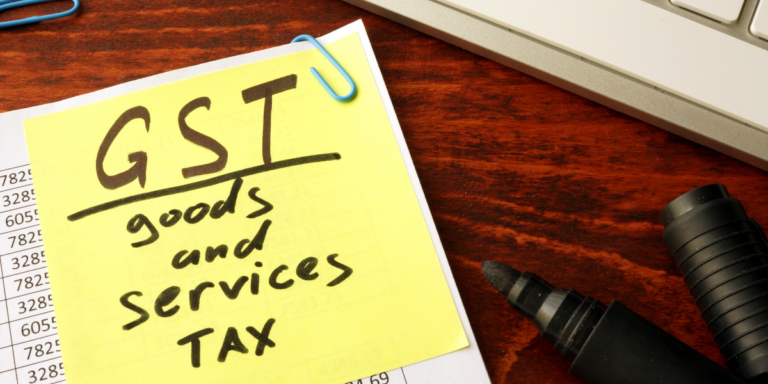 GST
goods
and
services
TAX
7825
3285
6055
7825
3285
7825
3285
6055
7825
3285